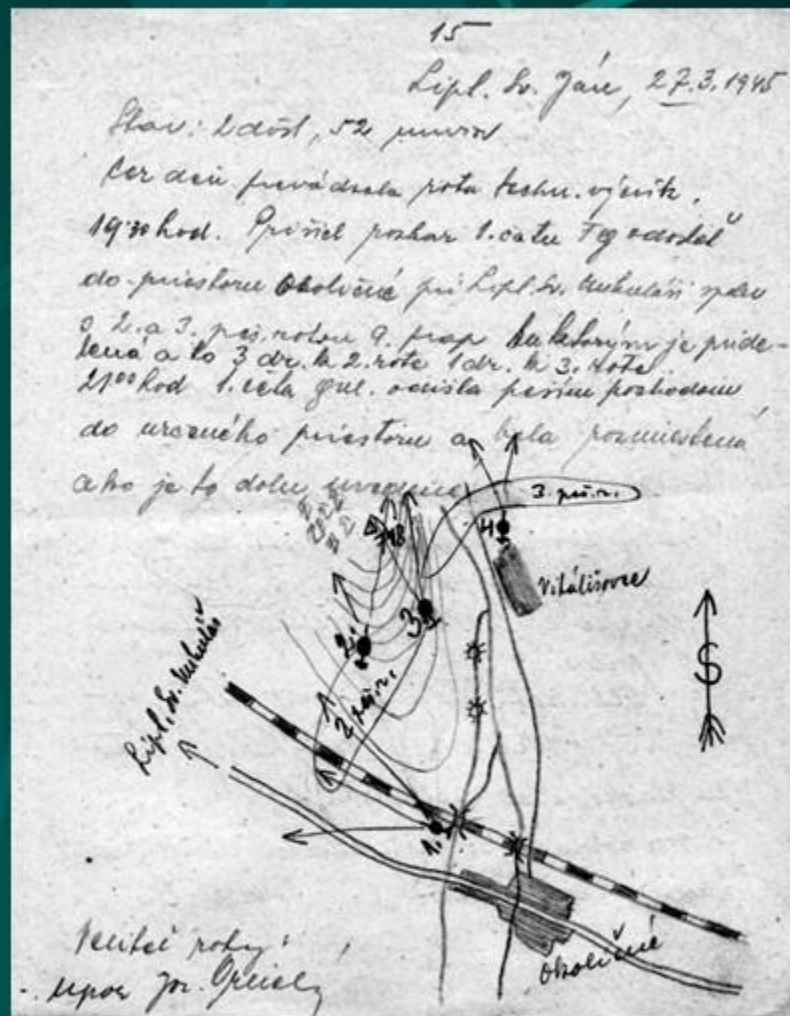 15
Lipt. Sv. Ján, 27.3.1945
Stav: 2 dôst, 52
Cez deň prevádzala rota techn. výcvik.
19³⁰ hod. Prišiel rozkaz 1. čatu odoslať
do priestoru Okoličné pri Lipt. Sv. Mikuláši
s 2. a 3. peš. rotou 9. prap. ku ktorým je pride-
lená a to 3 dr. k 2. rote 1 dr. k 3. rote
21⁰⁰ hod 1. čata odišla pešim pochodom
do určeného priestoru a bola rozmiestená
ako je to dolu uvedené
3. peš. r.
748
4
Vitálišovce
2.
3
2 peš. r.
Lipt. Sv. Mikuláš
S
1.
Okoličné
Veliteľ roty: